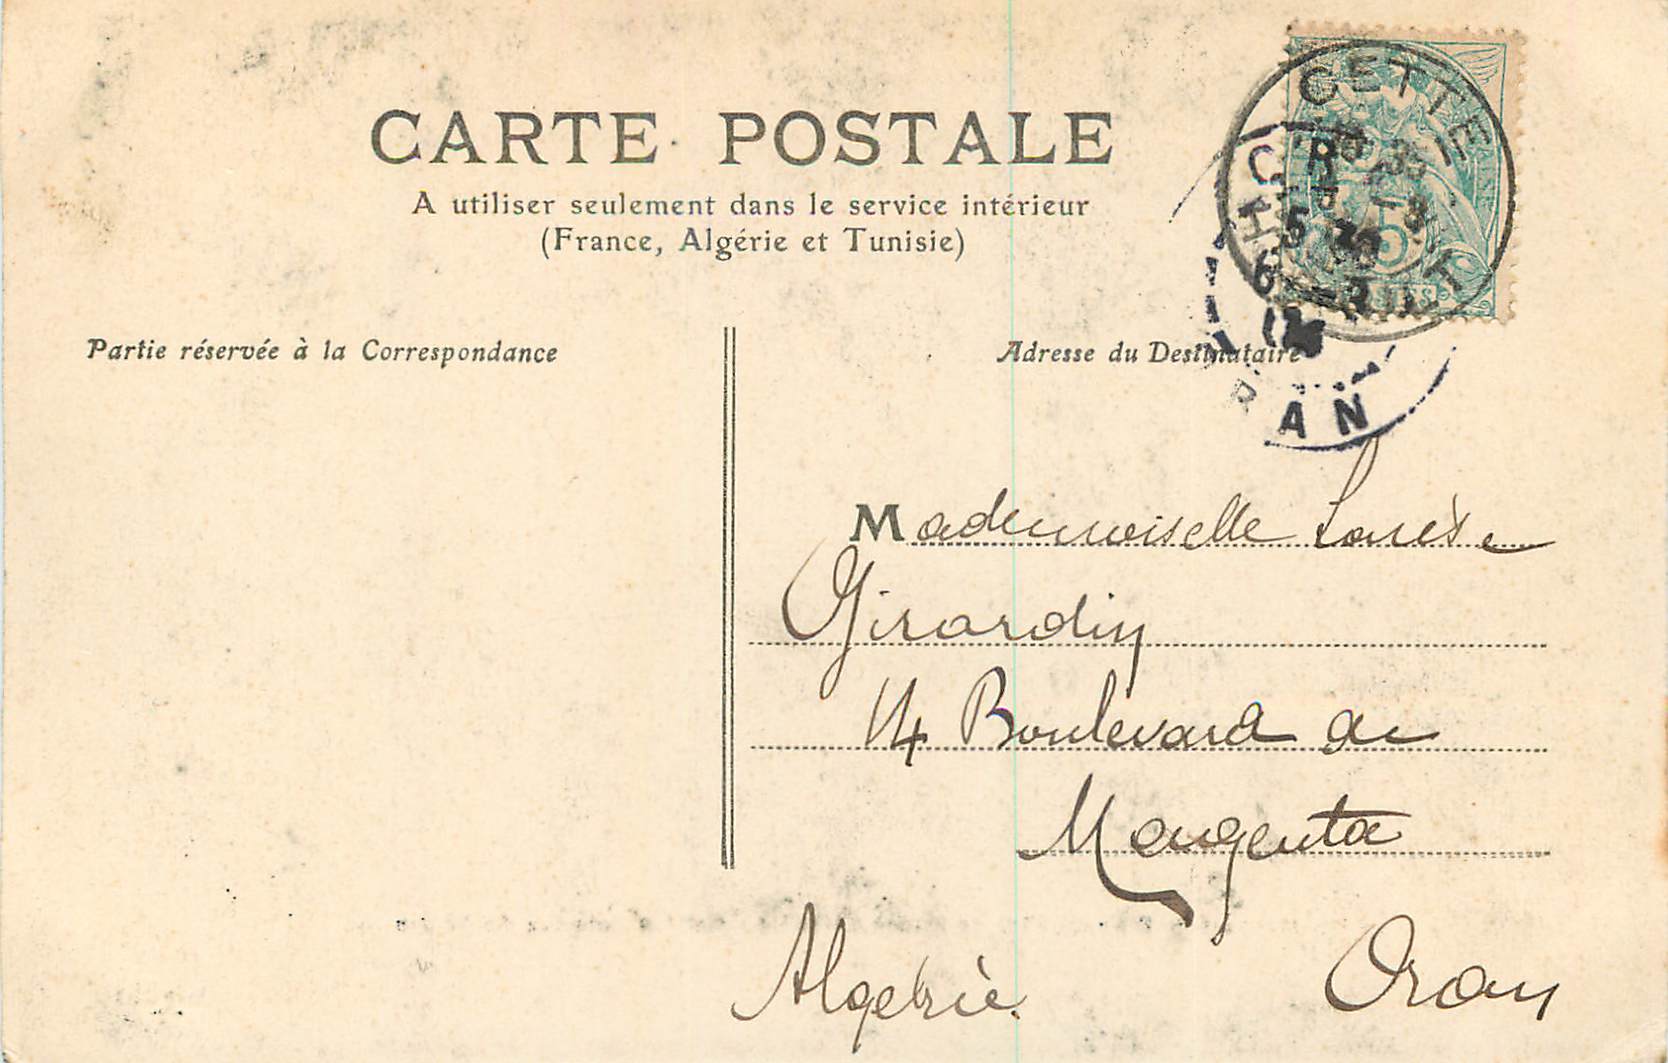 CARTE POSTALE
A utiliser seulement dans le service intérieur
(France, Algérie et Tunisie)
Partie réservée à la Correspondance
Adresse du Destinataire
CETTE
5
RAN
Mademoiselle
Girardin
14 Boulevard de
Magenta
Algérie Oran